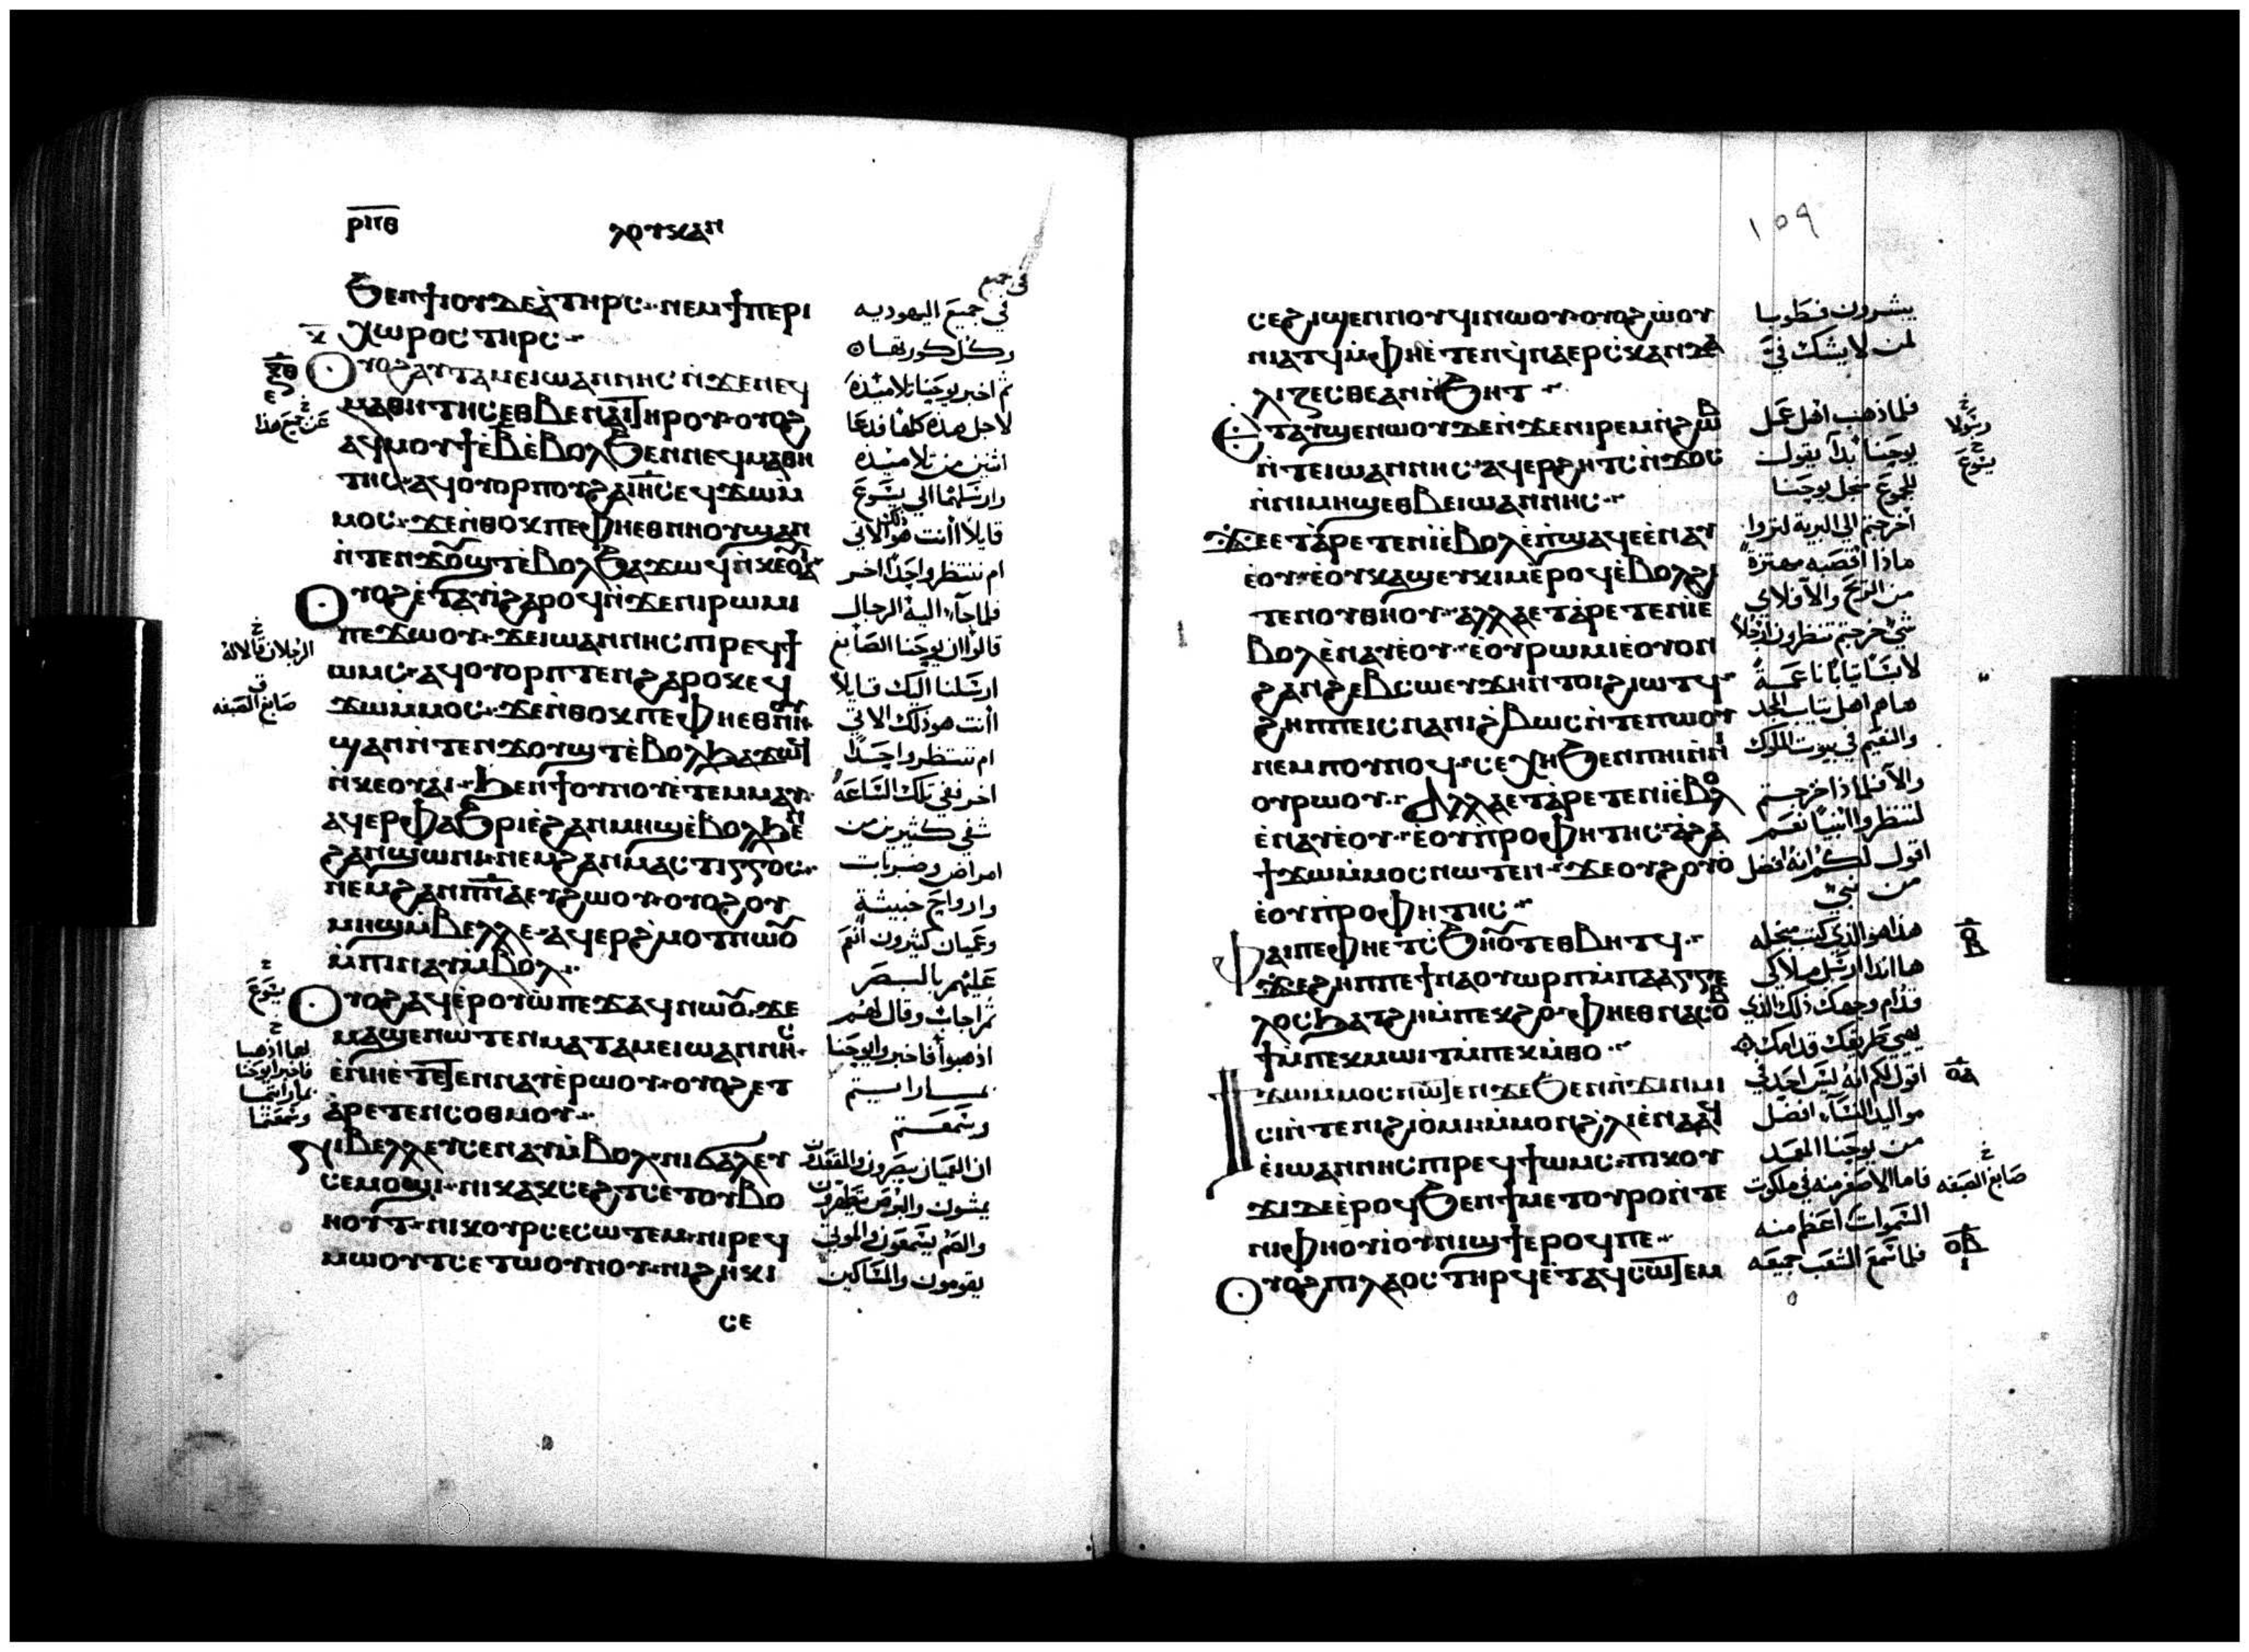 ⲣⲡⲑ ⲗⲟⲩⲕⲁⲛ
ϧⲉⲛϯⲓⲟⲩⲇⲉⲁ̀ⲧⲏⲣⲥ· ⲛⲉⲙϯⲡⲉⲣⲓ
ⲭⲱⲣⲟⲥ ⲧⲏⲣⲥ·
ⲟⲩⲟϩⲁⲩⲧⲁⲙⲉⲓⲱⲁⲛⲛⲏⲥ ⲛ̀ϫⲉⲛⲉϥ
ⲙⲁⲑⲏⲧⲏⲥⲉⲑⲃⲉⲛⲁⲓⲧⲏⲣⲟⲩ· ⲟⲩⲟϩ
ⲁϥⲙⲟⲩϯⲉ̀ⲃ̅ⲉ̀ⲃⲟⲗϧⲉⲛⲛⲉϥⲙⲁⲑⲏ
ⲧⲏⲥ· ⲁϥⲟⲩⲟⲣⲡⲟⲩϩⲁⲓⲏ̅ⲥ̅ⲉϥϫⲱⲙ̀
ⲙⲟⲥ· ϫⲉⲛ̀ⲑⲟⲕⲡⲉⲫⲏⲉⲑⲛⲏⲟⲩϣⲁⲛ
ⲛ̀ⲧⲉⲛϫⲟⲩϣⲧⲉ̀ⲃⲟⲗϧⲁϫⲱϥⲛ̀ⲕⲉⲟⲩⲁⲓ
ⲟⲩⲟϩⲉ̀ⲧⲁⲩⲓ̀ϩⲁⲣⲟϥⲛ̀ϫⲉⲛⲓⲣⲱⲙⲓ
ⲡⲉϫⲱⲟⲩ· ϫⲉⲓⲱⲁⲛⲛⲏⲥⲡⲓⲣⲉϥϯ
ⲱⲙⲥ· ⲁϥⲟⲩⲟⲣⲡⲧⲉⲛϩⲁⲣⲟⲕⲉϥ
ϫⲱⲙⲙⲟⲥ· ϫⲉⲛ̀ⲑⲟⲕⲡⲉⲫⲏⲉⲑⲛⲏⲟⲩ
ϣⲁⲛⲛ̀ⲧⲉⲛϫⲟⲩϣⲧⲉ̀ⲃⲟⲗϧⲁϫⲱϥ
ⲛ̀ⲕⲉⲟⲩⲁⲓ· ϧⲉⲛϯⲟⲩⲛⲟⲩⲉ̀ⲧⲉⲙⲙⲁⲩ·
ⲁϥⲉⲣⲫⲁϧⲣⲓⲉ̀ϩⲁⲛⲙⲏϣⲉ̀ⲃⲟⲗϧⲉⲛ
ϩⲁⲛϣⲱⲛⲓ· ⲛⲉⲙϩⲁⲛⲙⲁⲥⲧⲓⲅⲅⲟⲥ·
ⲛⲉⲙϩⲁⲛⲡ̅ⲛ̅ⲁⲉⲩϩⲱⲟⲩ· ⲟⲩⲟϩⲟⲩ
ⲙⲏϣⲙ̀ⲃⲉⲗⲗⲉ· ⲁϥⲉⲣϩ̀ⲙⲟⲧⲛⲱⲟⲩ
ⲙ̀ⲡⲓⲛⲁⲩⲙ̀ⲃⲟⲗ·
ⲟⲩⲟϩⲁϥⲉ̀ⲣⲟⲩⲱ̀ⲡⲉϫⲁϥⲛⲱⲟⲩ· ϫⲉ
ⲙⲁϣⲉⲛⲱⲧⲉⲛⲙⲁⲧⲁⲙⲉⲓⲱⲁⲛⲛⲏⲥ·
ⲉ̀ⲛⲏⲉ̀ⲧⲉⲧⲉⲛⲛⲁⲩⲉ̀ⲣⲱⲟⲩ· ⲟⲩⲟϩⲉⲧ
ⲁ̀ⲣⲉⲧⲉⲛⲥⲟⲑⲙⲟⲩ·
ⲛⲓⲃⲉⲗⲗⲉⲩⲥⲉⲛⲁⲩⲙ̀ⲃⲟⲗ· ⲛⲓϭⲁⲗⲉⲩ
ⲥⲉⲙⲟϣⲓ· ⲛⲓⲕⲁⲕⲥⲉϩⲧⲥⲉⲧⲟⲩⲃⲟ
ⲏⲟⲩⲧ· ⲛⲓⲕⲟⲩⲣⲥⲉⲥⲱⲧⲉⲙ· ⲛⲓⲣⲉϥ
ⲙⲱⲟⲩⲧⲥⲉⲧⲱⲟⲩⲛⲟⲩ· ⲛⲓϩⲏⲕⲓ
ⲥⲉ
في جميع
في جميع اليهوديه
وكل كورتها ه
ثم اخبر يوحنا تلاميذه
لاجل هذه كلها فدعا
اثنين من تلاميذه
وارسلهما الي يسوع
قايلا أانت هو الاتي
ام ننتظر واحدا اخر
فلما جآء اليه الرجال
قالوا ان يوحنا الصابغ
ارسلنا اليك قايلا
أانت هو ذلك الاتي
ام ننتظر واحدا
اخر ففي تلك الساعه
شفي كثيرين من
امراض وضربات
وارواح خبيثة
وعميان كثيرون انعم
عليهم بالبصر
ثم اجاب وقال لهم
اذهبوا فاخبروا يوحنا
بما رايتم
وسمعتم
ان العميان يبصرون والمقعدين
يمشون والبرص يتطهرون
والصم يسمعون والموتي
يقومون والمساكين
عن جميع هذا
الرجلان قالا له
صابغ الصبغه
يسوع
لهما اذهبا
فاخبرا يوحنا
بما رايتما
وسمعتما
١٥٩
ⲥⲉϩⲓϣⲉⲛⲛⲟⲩϥⲓⲛⲱⲟⲩ· ⲟⲩⲟϩⲱ̀ⲟⲩ
ⲛⲓⲁⲧϥⲙ̀ⲫⲏⲉ̀ⲧⲉⲛϥ̀ⲛⲁⲉⲣⲥ̀ⲕⲁⲛⲇⲁ
ⲗⲓⲍⲉⲥⲑⲉⲁⲛⲛ̀ϧⲏⲧ·
ⲉⲧⲁⲩϣⲉⲛⲱⲟⲩⲇⲉⲛ̀ϫⲉⲛⲓⲣⲉⲙⲛ̀ϩⲱⲃ
ⲛ̀ⲧⲉⲓⲱⲁⲛⲛⲏⲥ· ⲁϥⲉⲣϩⲏⲧⲥⲛ̀ϫⲟⲥ
ⲛ̀ⲛⲓⲙⲏϣⲉⲑⲃⲉⲓⲱⲁⲛⲛⲏⲥ·
ϫⲉⲉⲧⲁ̀ⲣⲉⲧⲉⲛⲓ̀ⲉ̀ⲃⲟⲗⲉ̀ⲡ̀ϣⲁϥⲉⲉ̀ⲛⲁⲩ
ⲉ̀ⲟⲩ· ⲉ̀ⲟⲩⲕⲁϣⲉⲩⲕⲓⲙⲉ̀ⲣⲟϥⲉ̀ⲃⲟⲗϩⲓ
ⲧⲉⲛⲟⲩⲑⲏⲟⲩ· ⲁⲗⲗⲁⲉⲧⲁ̀ⲣⲉⲧⲉⲛⲓ̀ⲉ̀
ⲃⲟⲗⲉ̀ⲛⲁⲩⲉ̀ⲟⲩ· ⲉ̀ⲟⲩⲣⲱⲙⲓⲉ̀ⲟⲩⲟⲛ
ϩⲁⲛϩⲉⲃⲥⲱⲉⲩϫⲏⲛⲧⲟⲓϩⲓⲱⲧϥ·
ϩⲏⲡⲡⲉⲓⲥⲛⲁⲛⲓϩⲃⲱⲥⲛ̀ⲧⲉⲡⲱⲟⲩ
ⲛⲉⲙⲡⲟⲩⲛⲟϥ· ⲥⲉⲭⲏϧⲉⲛⲛⲓⲏⲓⲛ̀ⲛⲓ
ⲟⲩⲣⲱⲟⲩ· ⲁⲗⲗⲁⲉⲧⲁ̀ⲣⲉⲧⲉⲛⲓ̀ⲉ̀ⲃⲟⲗ
ⲉ̀ⲛⲁⲩⲉ̀ⲟⲩ· ⲉ̀ⲟⲩⲡ̀ⲣⲟⲫⲏⲧⲏⲥ· ⲁ̀ϩⲁ
ϯϫⲱⲙ̀ⲙⲟⲥⲛⲱⲧⲉⲛ· ϫⲉⲟⲩϩⲟⲩⲟ̀
ⲉ̀ⲟⲩⲡ̀ⲣⲟⲫⲏⲧⲏⲥ·
ⲫⲁⲓⲡⲉⲫⲏⲉⲧⲥ̀ϧⲏⲟⲩⲧⲉⲑⲃⲏⲧϥ·
ϫⲉϩⲏⲡⲡⲉϯⲛⲁⲟⲩⲱⲣⲡⲙ̀ⲡⲁⲁⲅⲅⲉ
ⲗⲟⲥϧⲁⲧϩⲏⲙ̀ⲡⲉⲕϩⲟ· ⲫⲏⲉⲑⲛⲁⲥⲟⲃ
ϯⲙ̀ⲡⲉⲕⲙⲱⲓⲧⲙ̀ⲡⲉⲕⲙ̀ⲑⲟ·
ϯϫⲱⲙⲙⲟⲥⲛⲱⲧⲉⲛϫⲉϧⲉⲛⲛ̀ϫⲓⲛⲙⲓ
ⲥⲓⲛ̀ⲧⲉⲛⲓϩⲓⲟ̀ⲙⲓ· ⲙ̀ⲙⲟⲛϩ̀ⲗⲓⲉ̀ⲛⲁⲁϥ
ⲉ̀ⲓⲱⲁⲛⲛⲏⲥⲡⲓⲣⲉϥϯⲱⲙⲥ· ⲡⲓⲕⲟⲩ
ϫⲓⲇⲉⲉ̀ⲣⲟϥϧⲉⲛϯⲙⲉⲧⲟⲩⲣⲟⲛ̀ⲧⲉ
ⲛⲓⲫⲏⲟⲩⲓ̀ⲟⲩⲛⲓϣϯⲉⲣⲟϥⲡⲉ·
ⲟⲩⲟϩⲡⲓⲗⲁⲟⲥⲧⲏⲣϥⲉ̀ⲧⲁϥⲥⲱⲧⲉⲙ
يبشرون فطوبا
لمن لا يشك فيّ
فلما ذهب اهل عمل
يوحنا بدآ يقول
للجموع نحل يوحنا
أخرجتم الي البرية لتروا
ماذا اقصبه مهتزة
من الريح والآ فلاي
شيء خرجتم تنظرون ارجلا
لابسا ثيابا ناعمة
هاهم اهل ثياب المجد
والنعيم في بيوت الملوك
والآ فلماذا خرجتم
لتنظروا انبيا نعم
اقول لكم انه افضل
من نبيّ
هذا هو الذي كتب من اجله
ها انذا ارسل ملاكي
قدام وجهك ذلك الذي
يهيي طريقك قدامك
اقول لكم انه ليس احد في
مواليد النسآء افضل
من يوحنا المعمد
فاما الاصغر منه في ملكوت
السموات اعظم منه
فلما سمع الشعب جميعه
يسوع
صابغ الصبغه